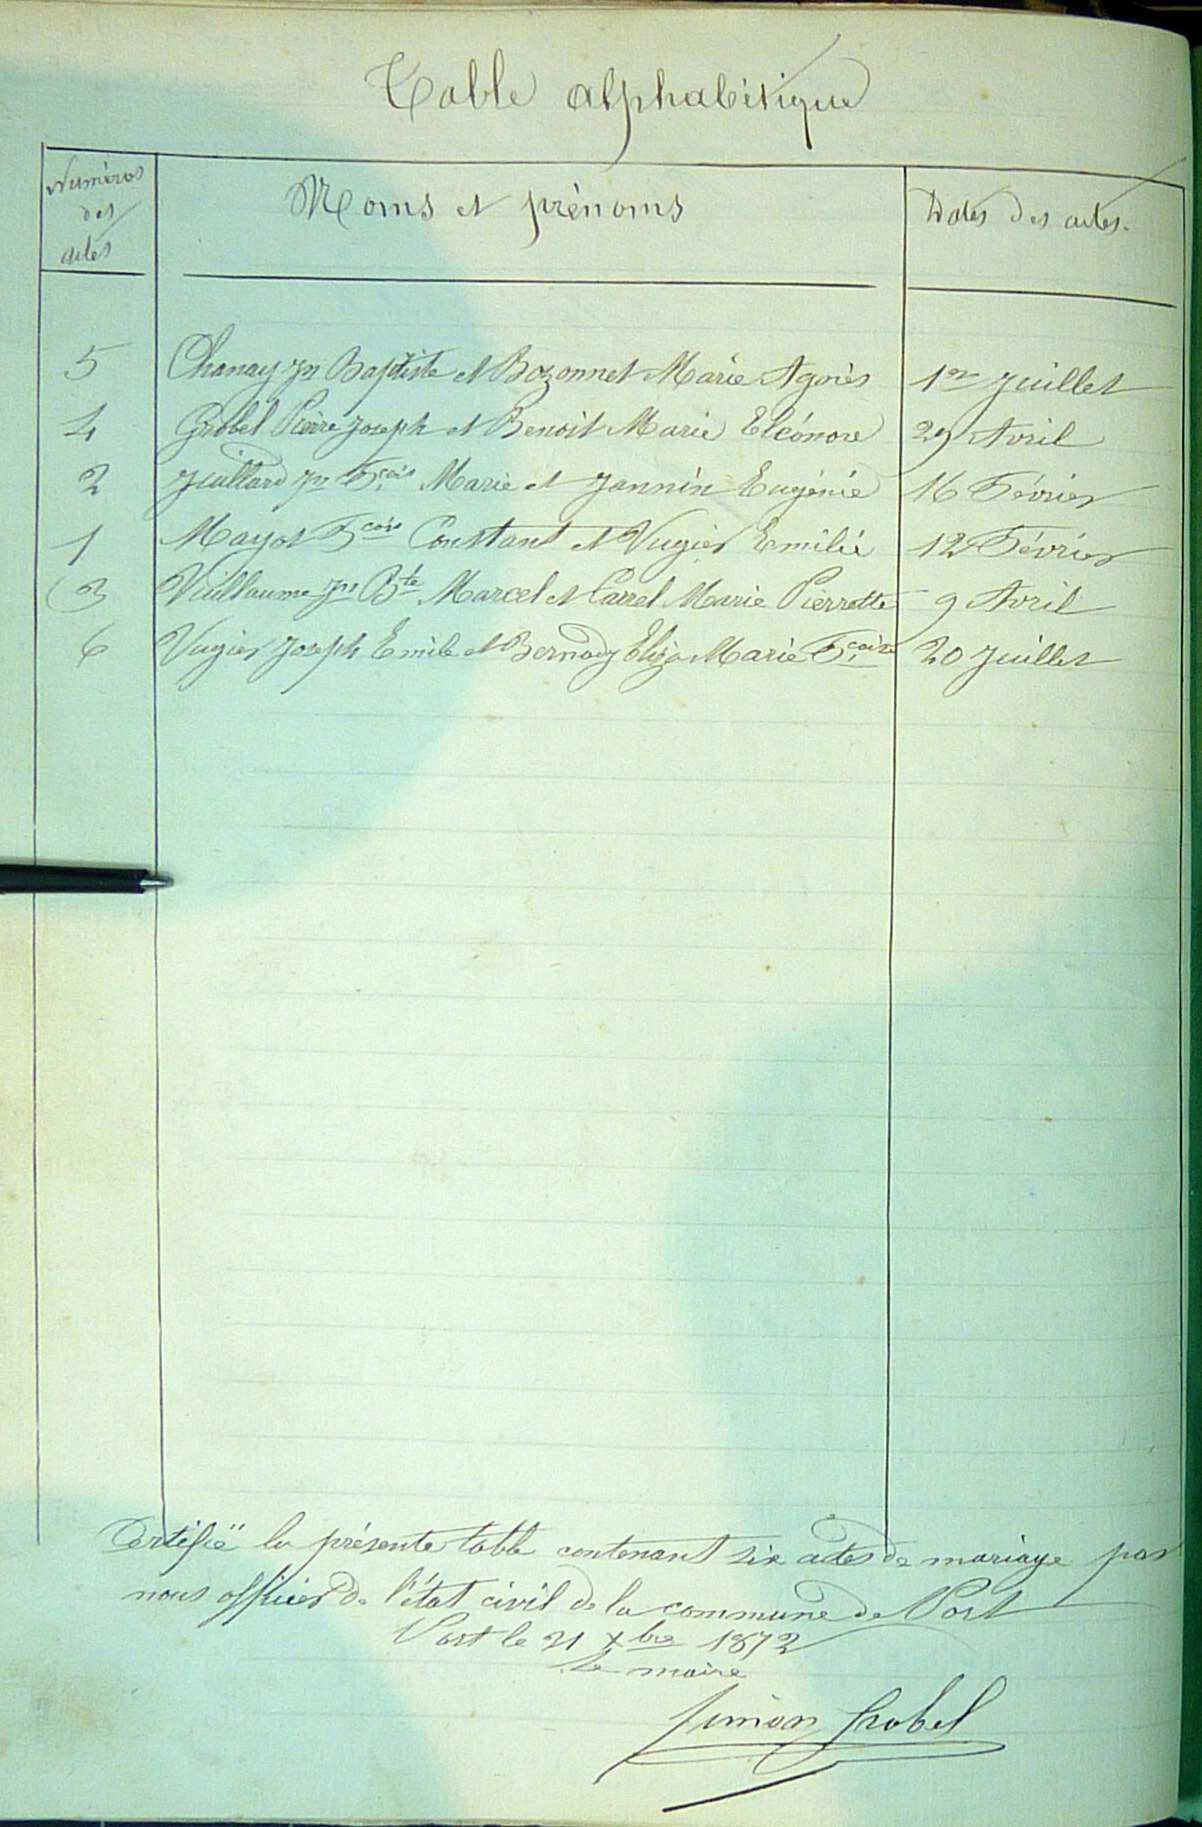 Table alphabétique
Numéros des actes
Noms et prénoms
Dates des actes.
5 Chanay Jn Baptiste et Bozonnet Marie Agnès 1er Juillet
4 Grobel Pierre Joseph et Benoit Marie Eléonore 29 Avril
2 Juillard Jn Fçois Marie et Jannin Eugénie 16 Février
1 Mayot Fçois Constant et Vugier Emilie 12 Février
3 Vuillaume Jn Bte Marcel et Carrel Marie Pierrette 9 Avril
6 Vugier Joseph Emile et Bernady Eliza Marie Fçoise 20 Juillet
Certifié la présente table contenant six actes de mariage par
nous officier de l'état civil de la commune de Port
Port le 21 xbre 1872
Le maire
Simon Grobel